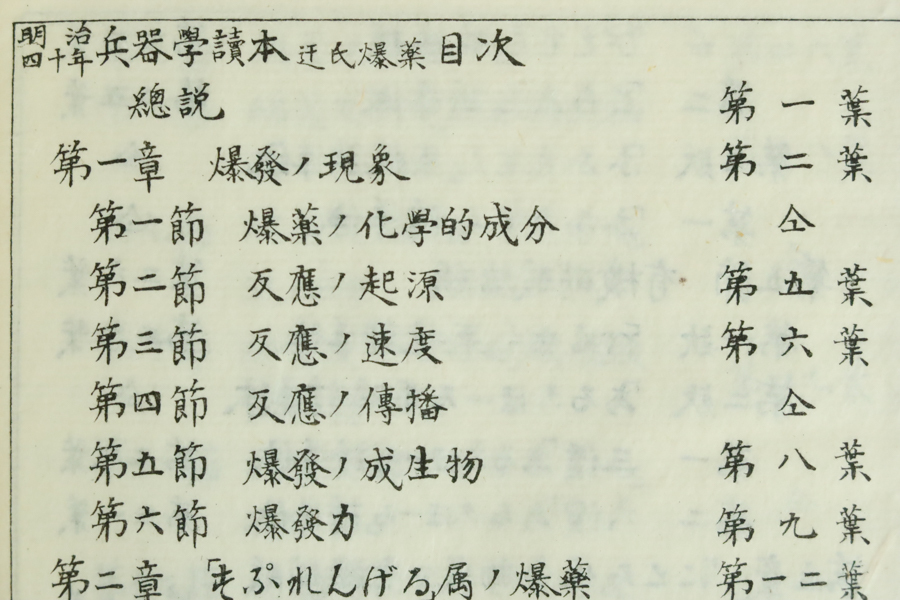 明治四十年兵器學讀本 迂氏爆薬 目次
總説 第一葉
第一章 爆發ノ現象 第二葉
第一節 爆薬ノ化學的成分 仝
第二節 反應ノ起源 第五葉
第三節 反應ノ速度 第六葉
第四節 反應ノ傳播 仝
第五節 爆發ノ成生物 第八葉
第六節 爆發力 第九葉
第二章 「しぷれんげる」属ノ爆薬 第一二葉